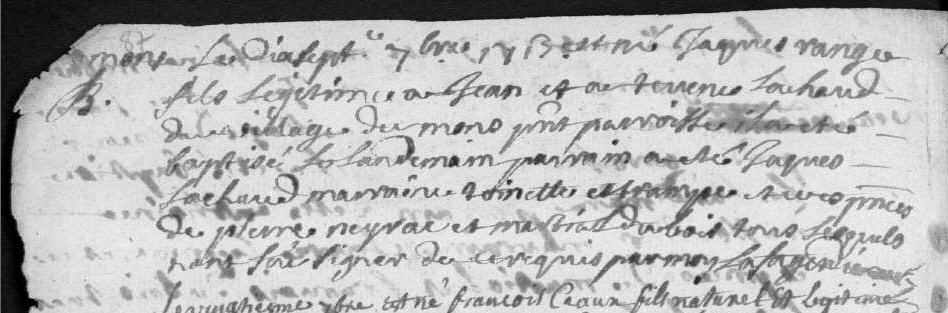 mons Le Diasept.e 7bre 1713 est né Jaques range
B. fils Legitime de Jean et de tevene Lachaud
du village de mons pnt parroisse il a ete
baptisé Le Landemain parrain a eté Jaques
Lachaud marraine toinette estrampe et en pnces
de pierre neyrac et martial dubois tous Lesquels
nont sçu signer de ce requis par moy
Le vingtiesme 7bre est né françois Ceaux fils naturel et legitime